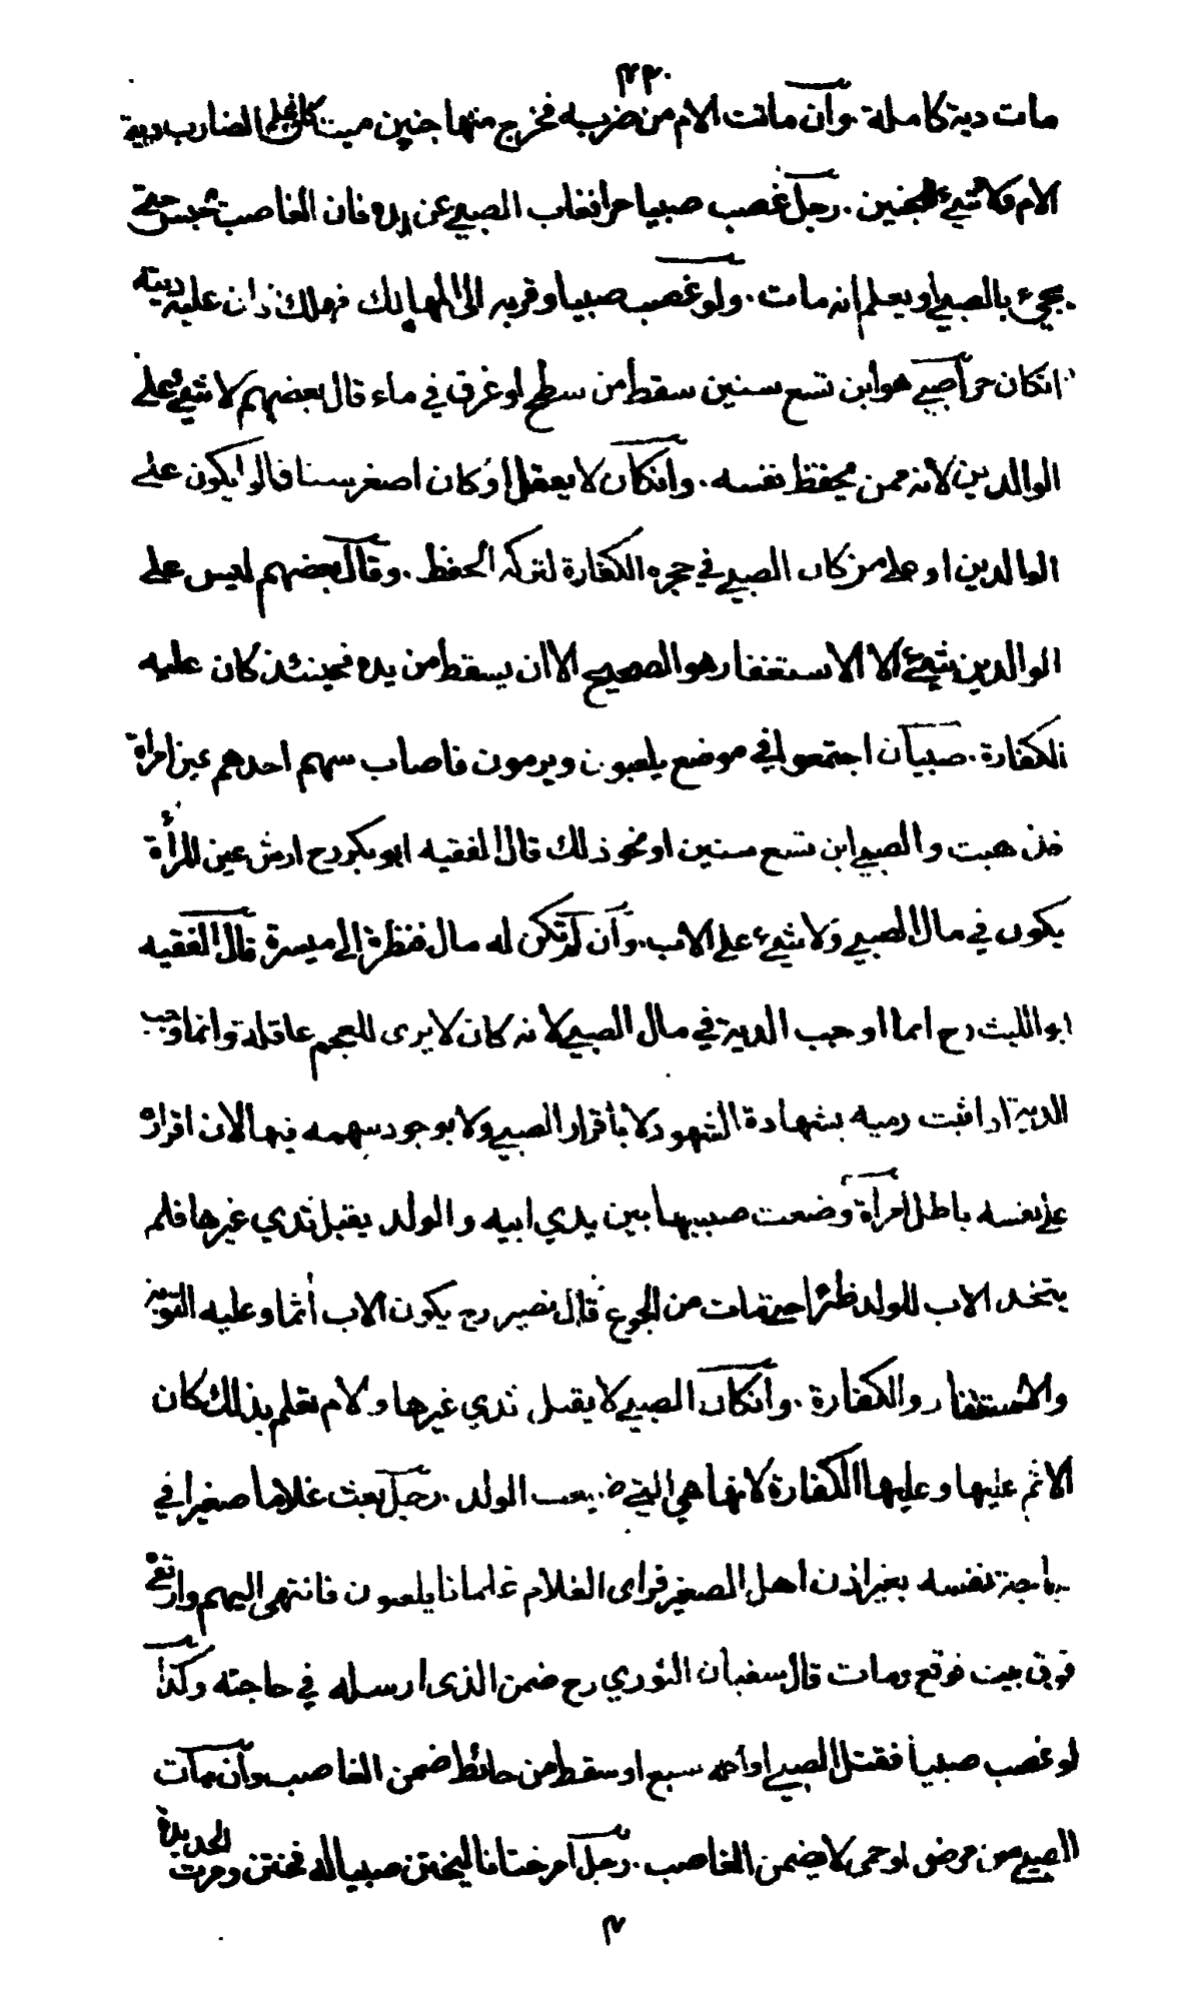 ٤٢٠
مات دية كاملة . وان ماتت الام من ضربه فخرج منها جنين ميت كان على الضارب دية
الام ولا شيء في الجنين . رجل غصب صبيا حرا فغاب الصبي عن يده فان الغاصب يحبس حتى
يجيء بالصبي او يعلم انه مات . ولو غصب صبيا وقربه الى المهالك فهلك كان عليه ديته
انكان حرا صبي هو ابن تسع سنين سقط من سطح او غرق في ماء قال بعضهم لا شيء على
الوالدين لانه ممن يحفظ نفسه . وانكان لا يعقل او كان اصغر سنا قالوا يكون على
الوالدين او على من كان الصبي في حجره الكفارة لتركه الحفظ . وقال بعضهم ليس على
الوالدين شيء الا الاستغفار هو الصحيح الا ان يسقط من يده فحينئذ كان عليه
الكفارة . صبيان اجتمعوا في موضع يلعبون ويرمون فاصاب سهم احدهم عين امراة
فذهبت والصبي ابن تسع سنين او نحو ذلك قال الفقيه ابو بكر رح ارش عين المرأة
يكون في مال الصبي ولا شيء على الاب . وان لم تكن له مال فنظرة الى ميسرة قال الفقيه
ابو الليث رح انما اوجب الدية في مال الصبي لانه كان لا يرى للعجم عاقلة وانما وجب
الدية اذا ثبت رميه بشهادة الشهود لا باقرار الصبي ولا بوجود سهمه فيها لان اقراره
على نفسه باطل امرأة وضعت صبيها بين يدي ابيه والولد يقبل ثدي غيرها فلم
يتخذ الاب للولد ظئرا حتى مات من الجوع قال نصير رح يكون الاب اثما وعليه التوبة
والاستغفار والكفارة . وانكان الصبي لا يقبل ثدي غيرها والام تعلم بذلك كان
الاثم عليها وعليها الكفارة لانها هي التي ضيعت الولد . رجل بعث غلاما صغيرا في
حاجة نفسه بغير اذن اهل الصغير فراى الغلام غلمانا يلعبون فانتهى اليهم وارتقى
فوق بيت فوقع ومات قال سفيان الثوري رح ضمن الذى ارسله في حاجته وكذا
لو غصب صبيا فقتل الصبي او اكله سبع او سقط من حائط ضمن الغاصب وان مات
الصبي من مرض او حمى لا يضمن الغاصب . رجل امر ختانا ليختن صبيا له فختن ومرت الحديدة